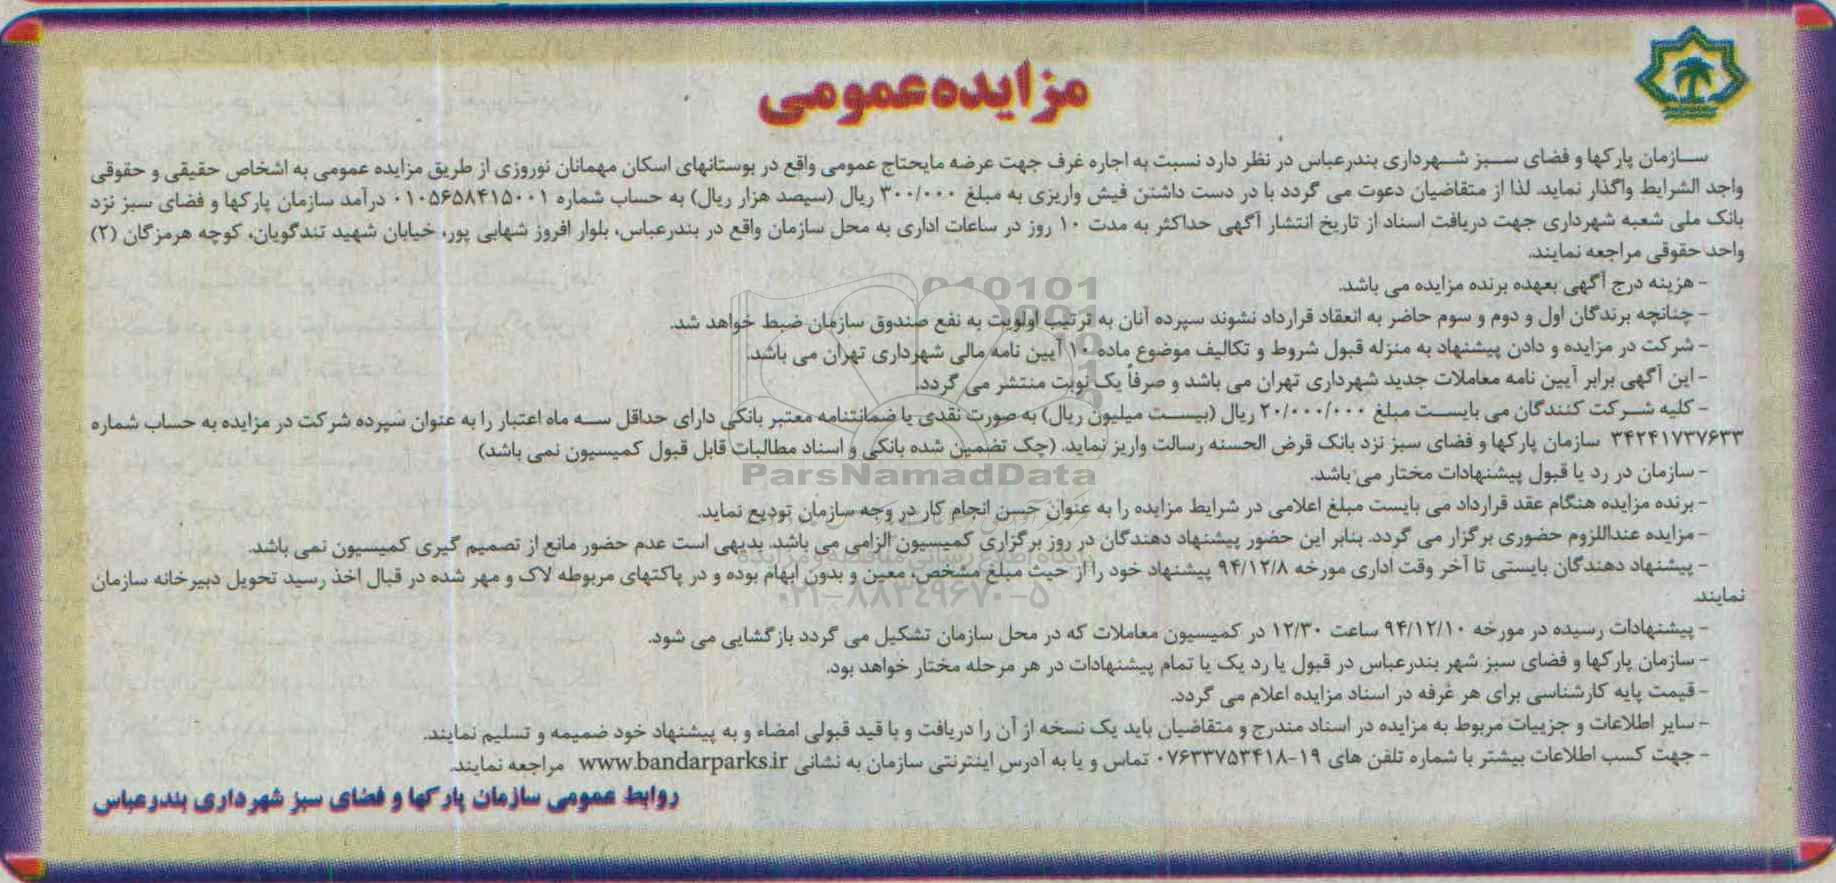 مزایده عمومی
سازمان پارکها و فضای سبز شهرداری بندرعباس در نظر دارد نسبت به اجاره غرف جهت عرضه مایحتاج عمومی واقع در بوستانهای اسکان مهمانان نوروزی از طریق مزایده عمومی به اشخاص حقیقی و حقوقی
واجد الشرایط واگذار نماید. لذا از متقاضیان دعوت می گردد با در دست داشتن فیش واریزی به مبلغ ۳۰۰/۰۰۰ ریال (سیصد هزار ریال) به حساب شماره ۰۱۰۵۶۵۸۴۱۵۰۰۱ درآمد سازمان پارکها و فضای سبز نزد
بانک ملی شعبه شهرداری جهت دریافت اسناد از تاریخ انتشار آگهی حداکثر به مدت ۱۰ روز در ساعات اداری به محل سازمان واقع در بندرعباس، بلوار افروز شهابی پور، خیابان شهید تندگویان، کوچه هرمزگان (۲)
واحد حقوقی مراجعه نمایند.
- هزینه درج آگهی بعهده برنده مزایده می باشد.
- چنانچه برندگان اول و دوم و سوم حاضر به انعقاد قرارداد نشوند سپرده آنان به ترتیب اولویت به نفع صندوق سازمان ضبط خواهد شد.
- شرکت در مزایده و دادن پیشنهاد به منزله قبول شروط و تکالیف موضوع ماده ۱۰ آیین نامه مالی شهرداری تهران می باشد.
- این آگهی برابر آیین نامه معاملات جدید شهرداری تهران می باشد و صرفاً یک نوبت منتشر می گردد.
- کلیه شرکت کنندگان می بایست مبلغ ۲۰/۰۰۰/۰۰۰ ریال (بیست میلیون ریال) به صورت نقدی یا ضمانتنامه معتبر بانکی دارای حداقل سه ماه اعتبار را به عنوان سپرده شرکت در مزایده به حساب شماره
۳۴۲۴۱۷۳۷۶۳۳ سازمان پارکها و فضای سبز نزد بانک قرض الحسنه رسالت واریز نماید. (چک تضمین شده بانکی و اسناد مطالبات قابل قبول کمیسیون نمی باشد)
- سازمان در رد یا قبول پیشنهادات مختار می باشد.
- برنده مزایده هنگام عقد قرارداد می بایست مبلغ اعلامی در شرایط مزایده را به عنوان حسن انجام کار در وجه سازمان تودیع نماید.
- مزایده عنداللزوم حضوری برگزار می گردد. بنابر این حضور پیشنهاد دهندگان در روز برگزاری کمیسیون الزامی می باشد. بدیهی است عدم حضور مانع از تصمیم گیری کمیسیون نمی باشد.
- پیشنهاد دهندگان بایستی تا آخر وقت اداری مورخه ۹۴/۱۲/۸ پیشنهاد خود را از حیث مبلغ مشخص، معین و بدون ابهام بوده و در پاکتهای مربوطه لاک و مهر شده در قبال اخذ رسید تحویل دبیرخانه سازمان
نمایند.
- پیشنهادات رسیده در مورخه ۹۴/۱۲/۱۰ ساعت ۱۲/۳۰ در کمیسیون معاملات که در محل سازمان تشکیل می گردد بازگشایی می شود.
- سازمان پارکها و فضای سبز شهر بندرعباس در قبول یا رد یک یا تمام پیشنهادات در هر مرحله مختار خواهد بود.
- قیمت پایه کارشناسی برای هر غرفه در اسناد مزایده اعلام می گردد.
- سایر اطلاعات و جزییات مربوط به مزایده در اسناد مندرج و متقاضیان باید یک نسخه از آن را دریافت و با قید قبولی امضاء و به پیشنهاد خود ضمیمه و تسلیم نمایند.
- جهت کسب اطلاعات بیشتر با شماره تلفن های ۱۹-۰۷۶۳۳۷۵۳۴۱۸ تماس و یا به آدرس اینترنتی سازمان به نشانی www.bandarparks.ir مراجعه نمایند.
روابط عمومی سازمان پارکها و فضای سبز شهرداری بندرعباس
ParsNamadData
۰۲۱-۸۸۳۴۹۶۷۰-۵